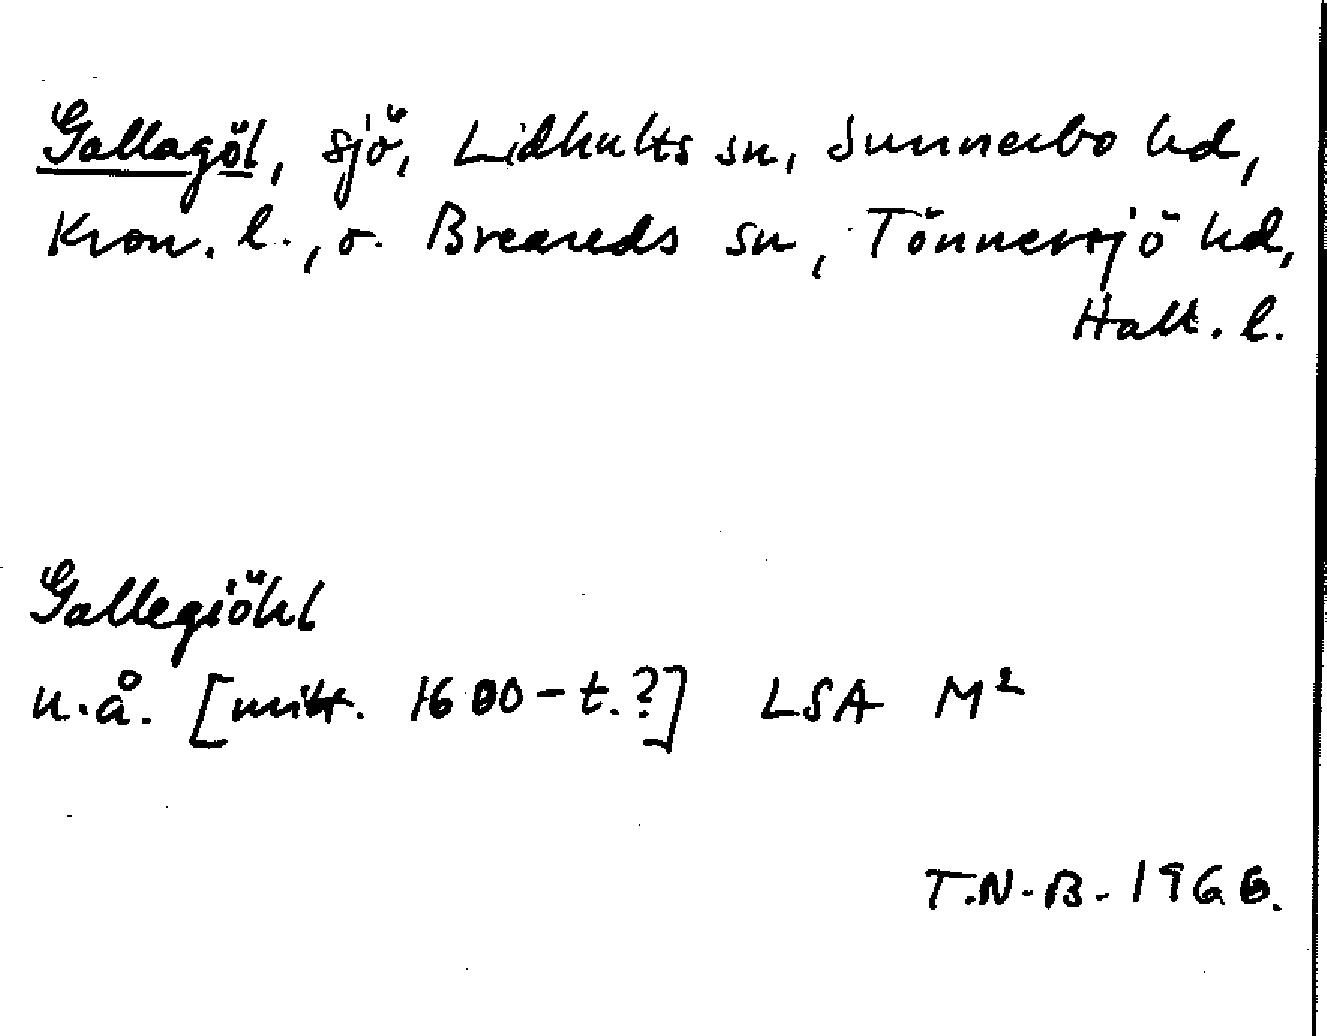 Gallagöl, sjö, Lidhults sn, Sunnerbo hd,
Kron. l., o. Breareds sn, Tönnersjö hd,
Hall. l.
Gallegiöhl
u.å. [mitt. 1600-t.?] LSA M²
T.N-B. 1966.